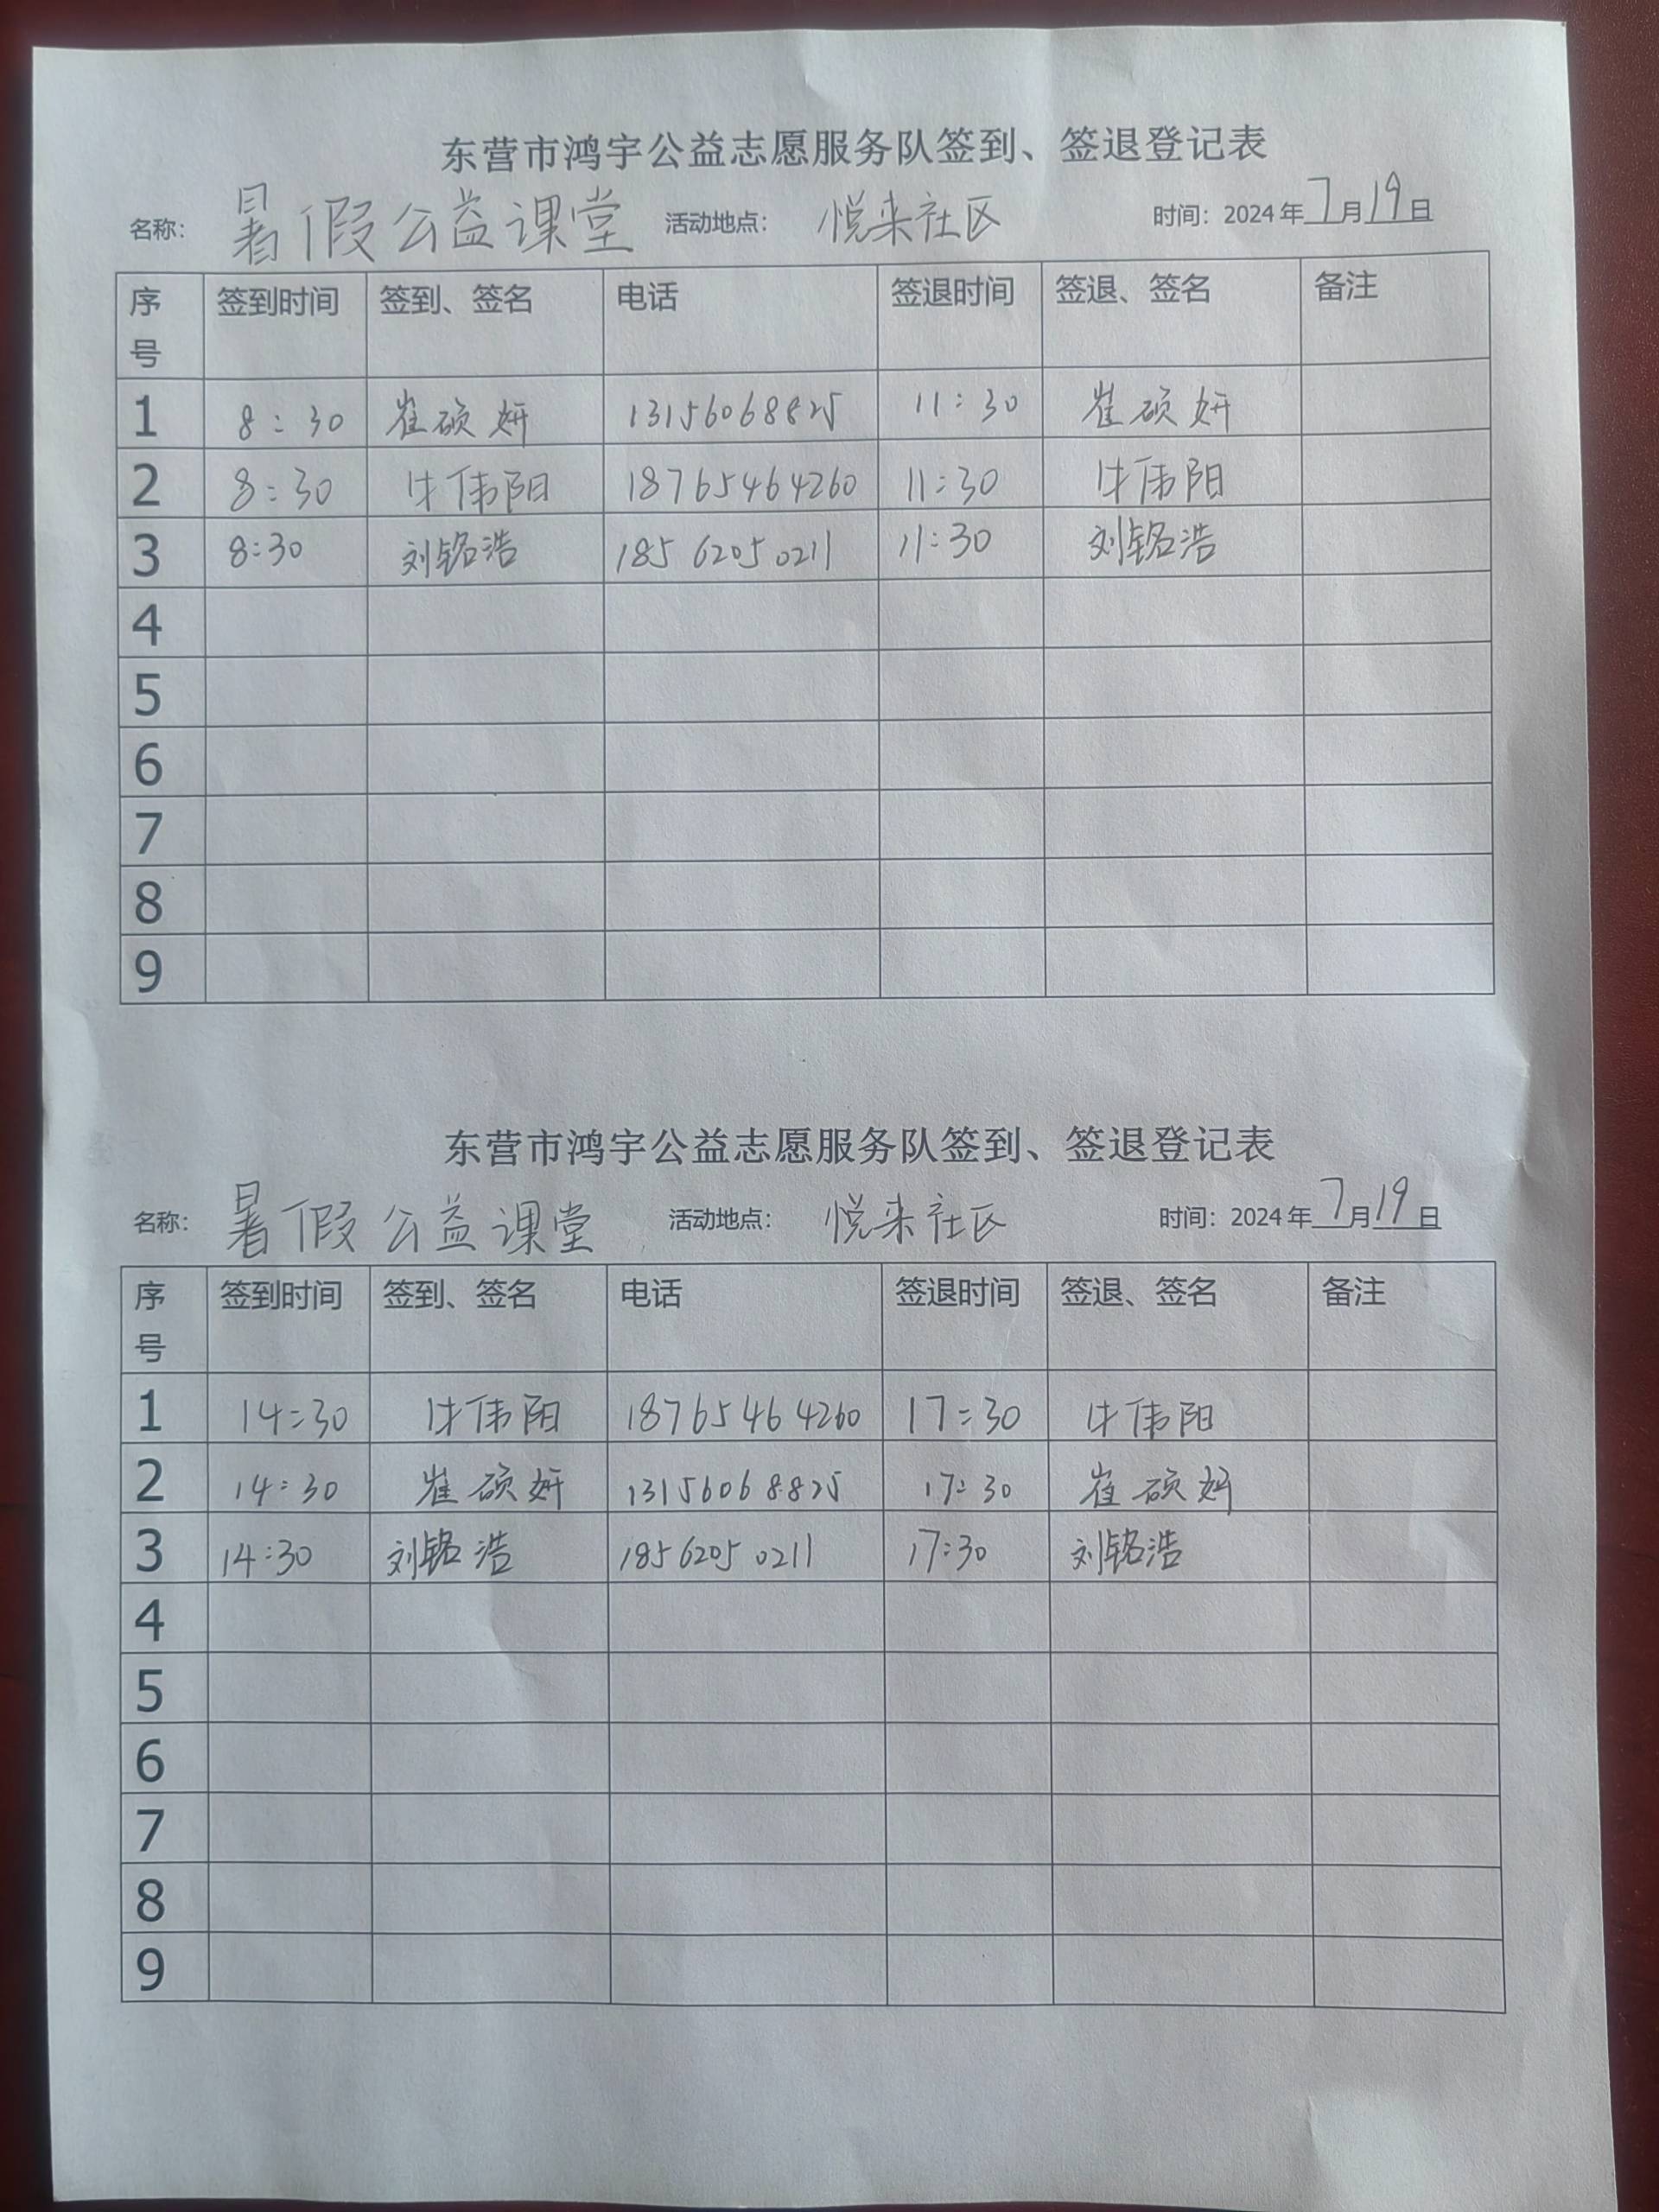 东营市鸿宇公益志愿服务队签到、签退登记表
名称： 暑假公益课堂 活动地点： 悦来社区 时间：2024年7月19日
序号 签到时间 签到、签名 电话 签退时间 签退、签名 备注
1 8:30 崔硕妍 13156068825 11:30 崔硕妍
2 8:30 牛伟阳 18765464260 11:30 牛伟阳
3 8:30 刘铭浩 18562050211 11:30 刘铭浩
4
5
6
7
8
9
东营市鸿宇公益志愿服务队签到、签退登记表
名称： 暑假公益课堂 活动地点： 悦来社区 时间：2024年7月19日
序号 签到时间 签到、签名 电话 签退时间 签退、签名 备注
1 14:30 牛伟阳 18765464260 17:30 牛伟阳
2 14:30 崔硕妍 13156068825 17:30 崔硕妍
3 14:30 刘铭浩 18562050211 17:30 刘铭浩
4
5
6
7
8
9